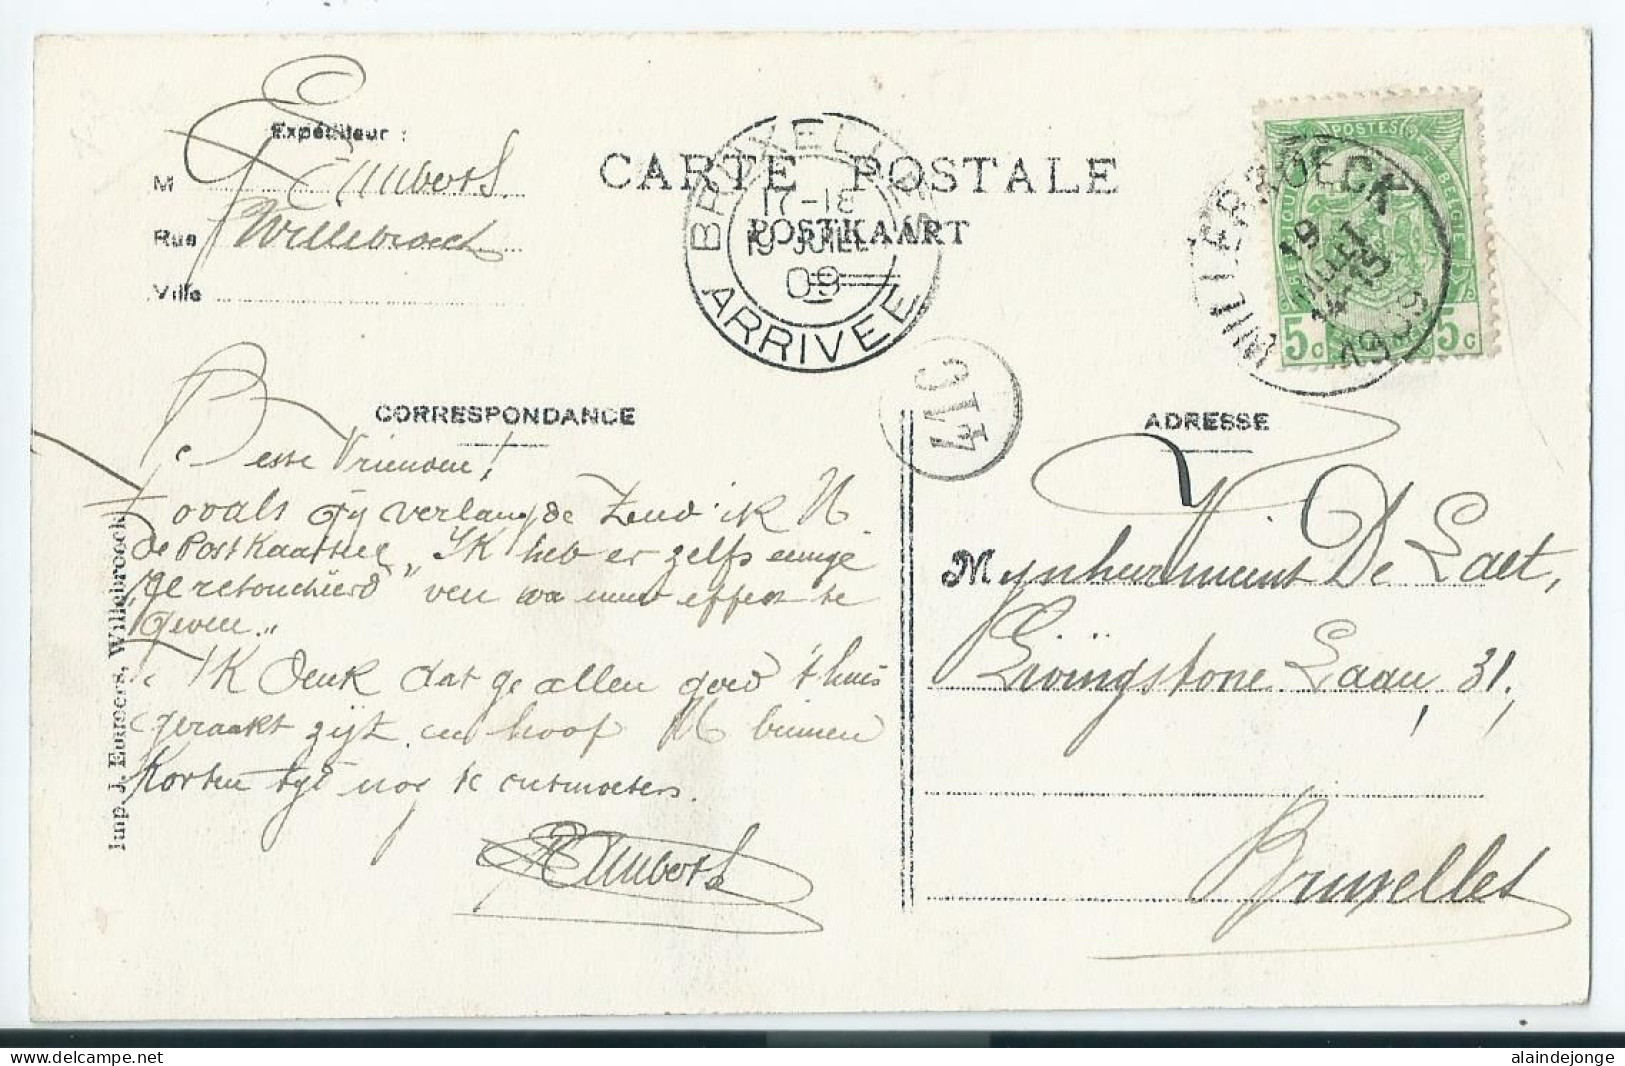 Expéditeur :
M
Rue Willebroeck
Ville
CARTE POSTALE
POSTKAART
BRUXELLES
17-18
19 JUIL
09
ARRIVEE
WILLEBROECK
19 JUILLET
14-15
1909
POSTES
BELGIQUE BELGIE
5c 5c
417
CORRESPONDANCE
Beste Vrienden!
Zooals Gij verlangde Zend ik U
de Postkaarten, Ik heb er zelfs eenige
"geretouchierd"
geven.
Ik Denk dat ge allen goed 't huis
geraakt zijt en hoop U binnen
Korten tijd nog te ontmoeten.
ADRESSE
Mynheer De Laet,
Livingstone Laan, 31,
Bruxelles
Imp. J. Eeuwers, Willebroeck
www.delcampe.net
alaindejonge